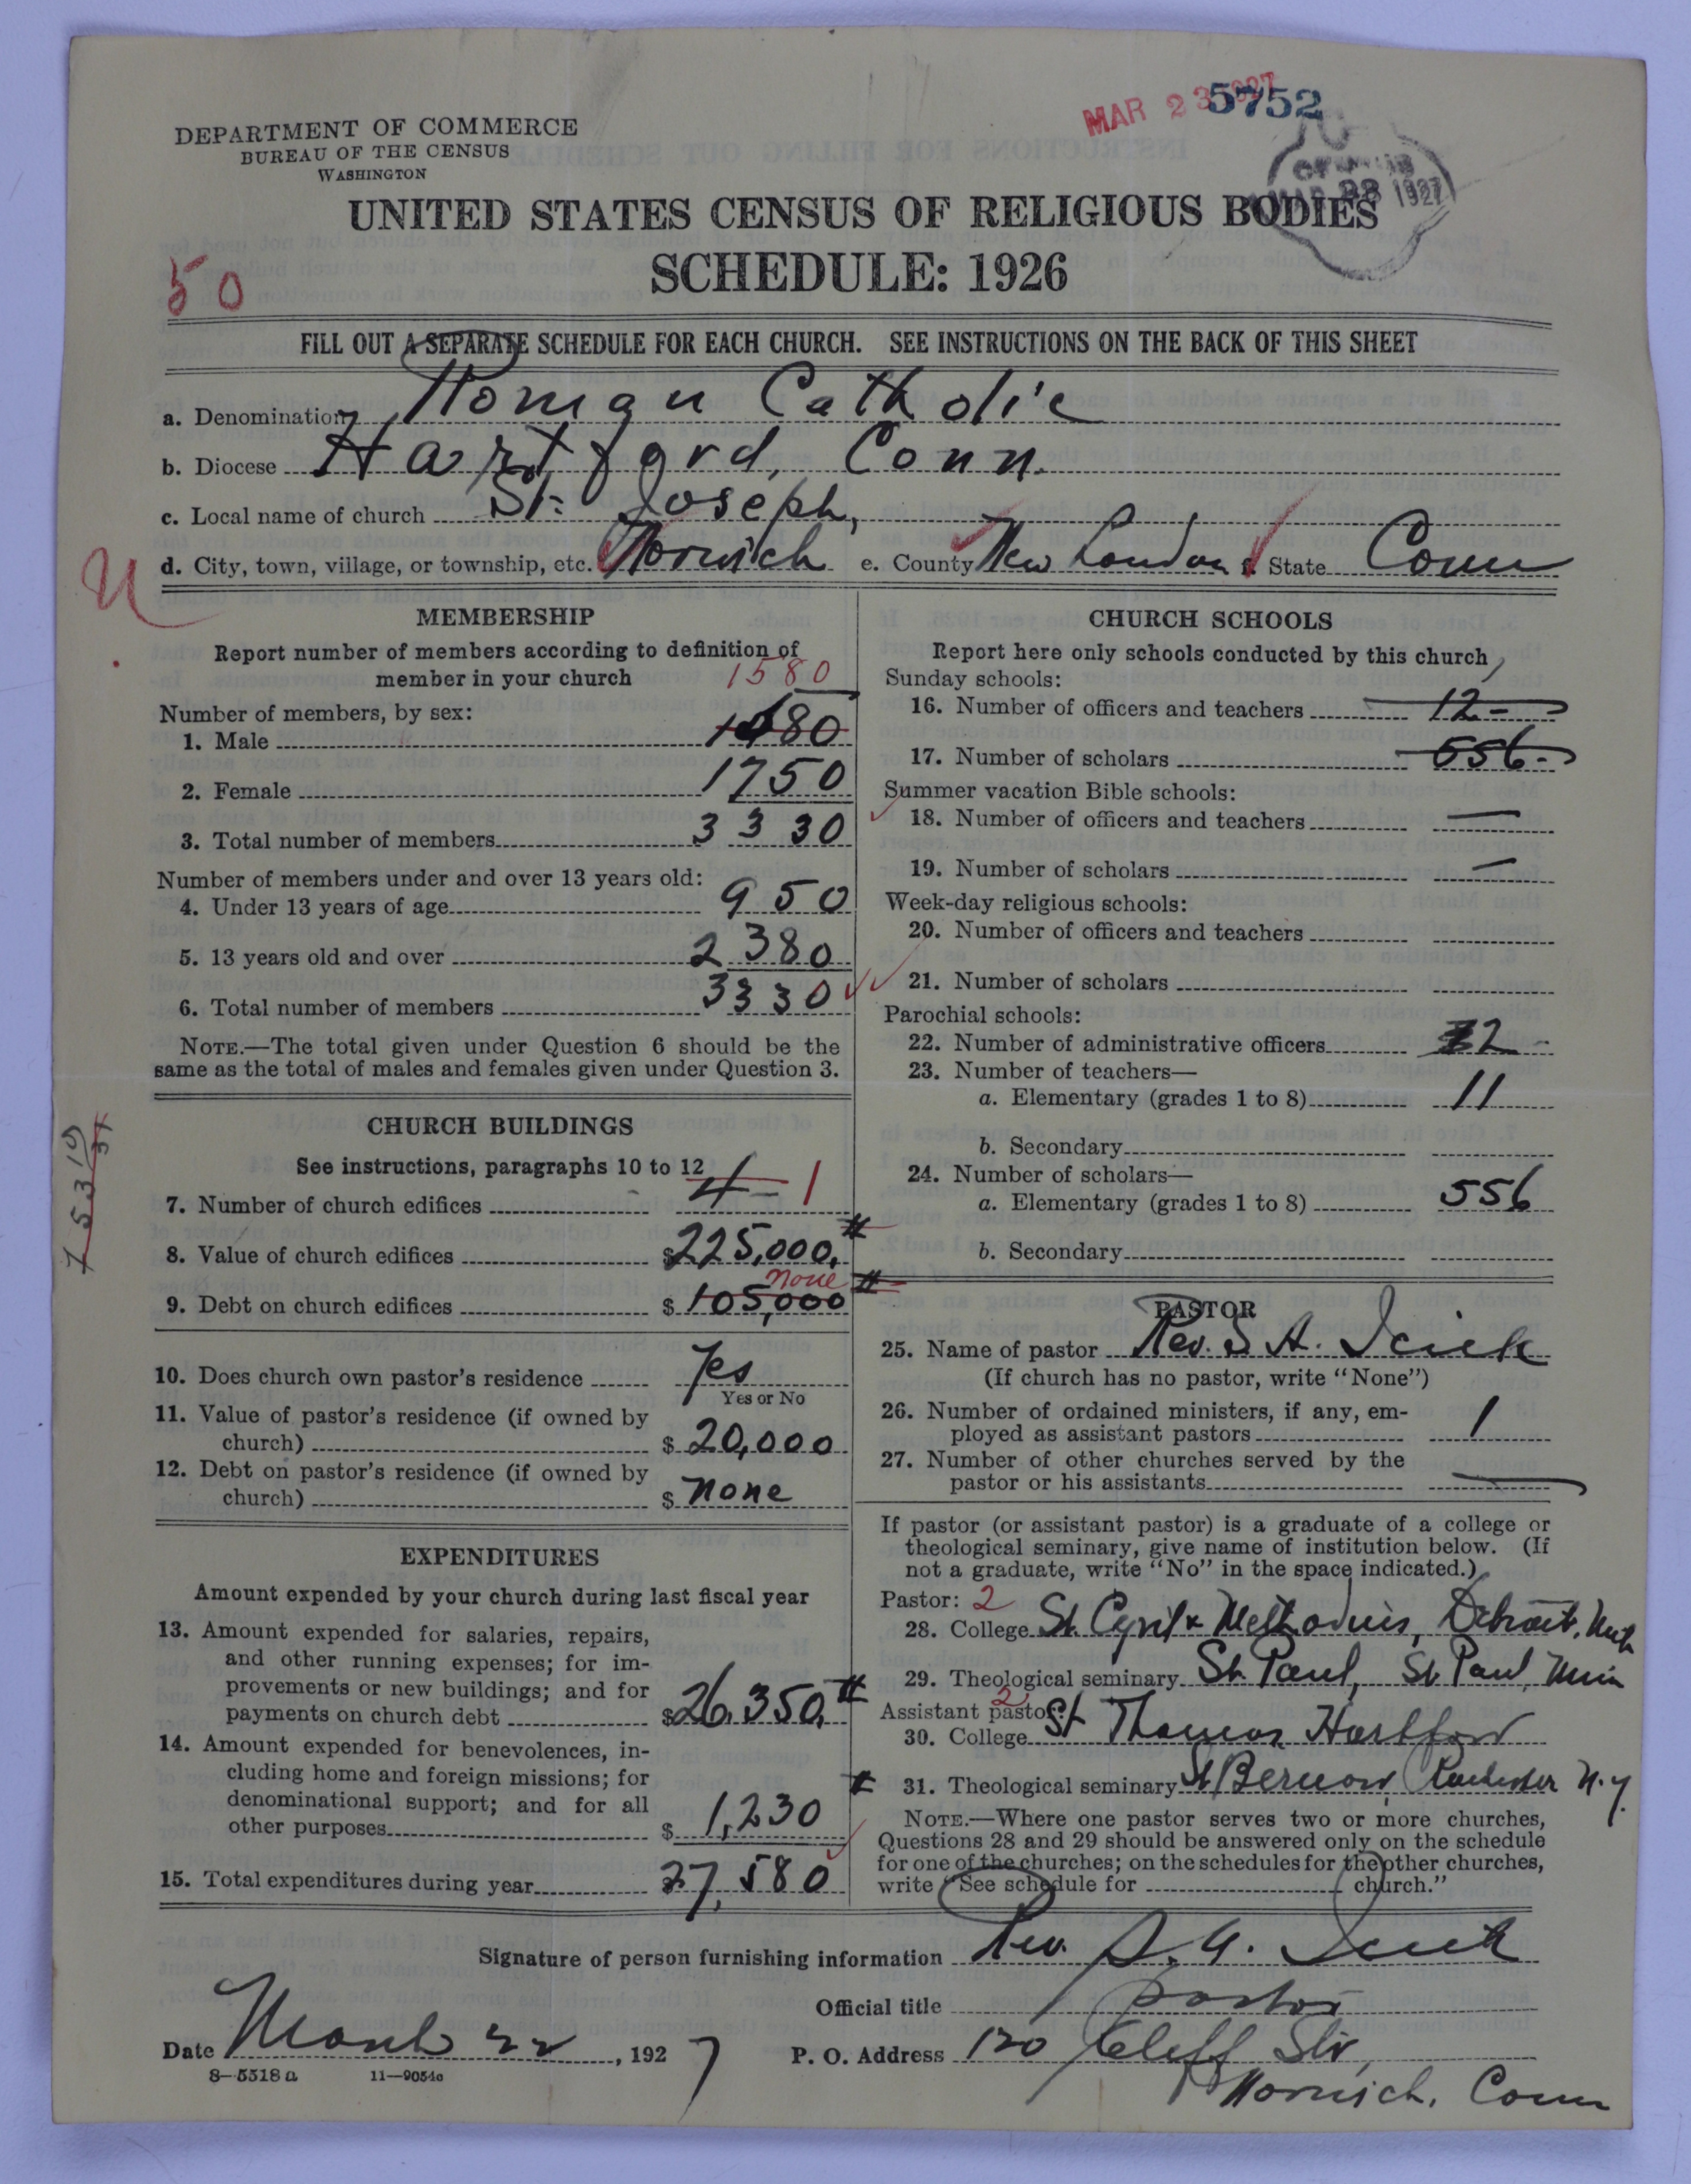 MAR 23 1927 5752
MAR 23 1927
DEPARTMENT OF COMMERCE
BUREAU OF THE CENSUS
WASHINGTON
UNITED STATES CENSUS OF RELIGIOUS BODIES
SCHEDULE: 1926
50
FILL OUT A SEPARATE SCHEDULE FOR EACH CHURCH. SEE INSTRUCTIONS ON THE BACK OF THIS SHEET
a. Denomination Roman Catholic
b. Diocese Hartford, Conn.
c. Local name of church St. Joseph,
d. City, town, village, or township, etc. Norwich e. County New London f. State Conn
MEMBERSHIP
Report number of members according to definition of
member in your church 1580
Number of members, by sex:
1. Male 1480
2. Female 1750
3. Total number of members 3330
Number of members under and over 13 years old:
4. Under 13 years of age 950
5. 13 years old and over 2380
6. Total number of members 3330
NOTE.—The total given under Question 6 should be the
same as the total of males and females given under Question 3.
CHURCH BUILDINGS
See instructions, paragraphs 10 to 12
7. Number of church edifices 4 - 1
8. Value of church edifices $225,000.
none
9. Debt on church edifices $105,000
10. Does church own pastor's residence Yes
Yes or No
11. Value of pastor's residence (if owned by
church) $20,000
12. Debt on pastor's residence (if owned by
church) $none
EXPENDITURES
Amount expended by your church during last fiscal year
13. Amount expended for salaries, repairs,
and other running expenses; for im-
provements or new buildings; and for
payments on church debt $26,350.
14. Amount expended for benevolences, in-
cluding home and foreign missions; for
denominational support; and for all
other purposes $1,230
15. Total expenditures during year 27,580
CHURCH SCHOOLS
Report here only schools conducted by this church
Sunday schools:
16. Number of officers and teachers 12-
17. Number of scholars 556-
Summer vacation Bible schools:
18. Number of officers and teachers —
19. Number of scholars —
Week-day religious schools:
20. Number of officers and teachers
21. Number of scholars
Parochial schools:
22. Number of administrative officers 2 -
23. Number of teachers—
a. Elementary (grades 1 to 8) 11
b. Secondary
24. Number of scholars—
a. Elementary (grades 1 to 8) 556
b. Secondary
PASTOR
25. Name of pastor Rev. S. A.
(If church has no pastor, write "None")
26. Number of ordained ministers, if any, em-
ployed as assistant pastors 1
27. Number of other churches served by the
pastor or his assistants —
If pastor (or assistant pastor) is a graduate of a college or
theological seminary, give name of institution below. (If
not a graduate, write "No" in the space indicated.)
Pastor: 2
28. College St. Cyril & Methodius, Detroit, Mich
29. Theological seminary St. Paul, St Paul, Minn
Assistant pastor: 2
30. College St Thomas Hartford
31. Theological seminary St Bernard, Rochester N.Y.
NOTE.—Where one pastor serves two or more churches,
Questions 28 and 29 should be answered only on the schedule
for one of the churches; on the schedules for the other churches,
write "See schedule for church."
Signature of person furnishing information Rev. S. A.
Official title Pastor
Date March 22, 1927 P. O. Address 120 Cliff Str,
8—5318 a 11—9054a
Norwich, Conn